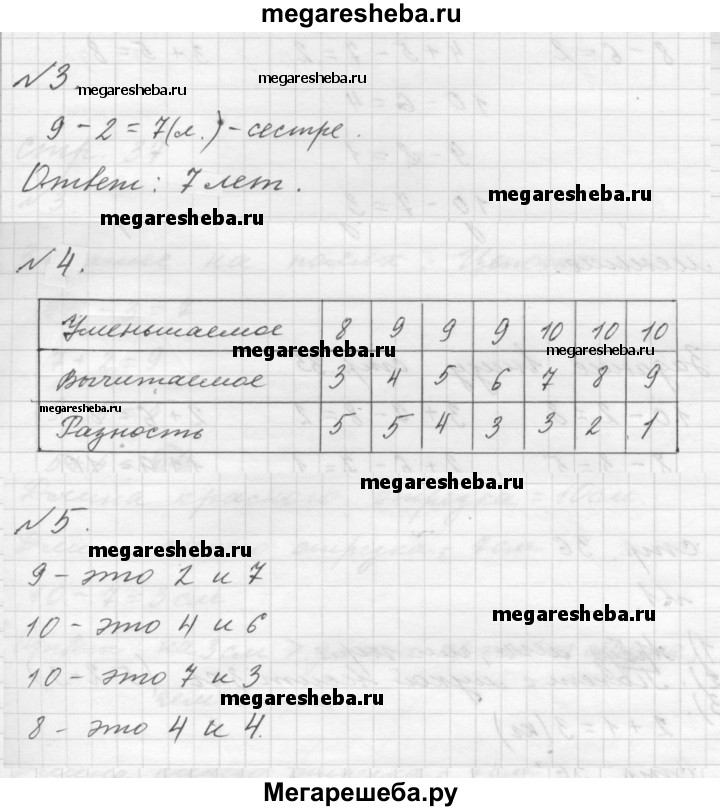 megaresheba.ru
№3.
megaresheba.ru
megaresheba.ru
9 - 2 = 7(л.) - сестре.
Ответ: 7 лет.
megaresheba.ru
megaresheba.ru
№4.
Уменьшаемое 8 9 9 9 10 10 10
megaresheba.ru
megaresheba.ru
Вычитаемое 3 4 5 6 7 8 9
megaresheba.ru
Разность 5 5 4 3 3 2 1
megaresheba.ru
№5.
megaresheba.ru
9 - это 2 и 7
megaresheba.ru
10 - это 4 и 6
10 - это 7 и 3
megaresheba.ru
8 - это 4 и 4.
Мегарешеба.ру